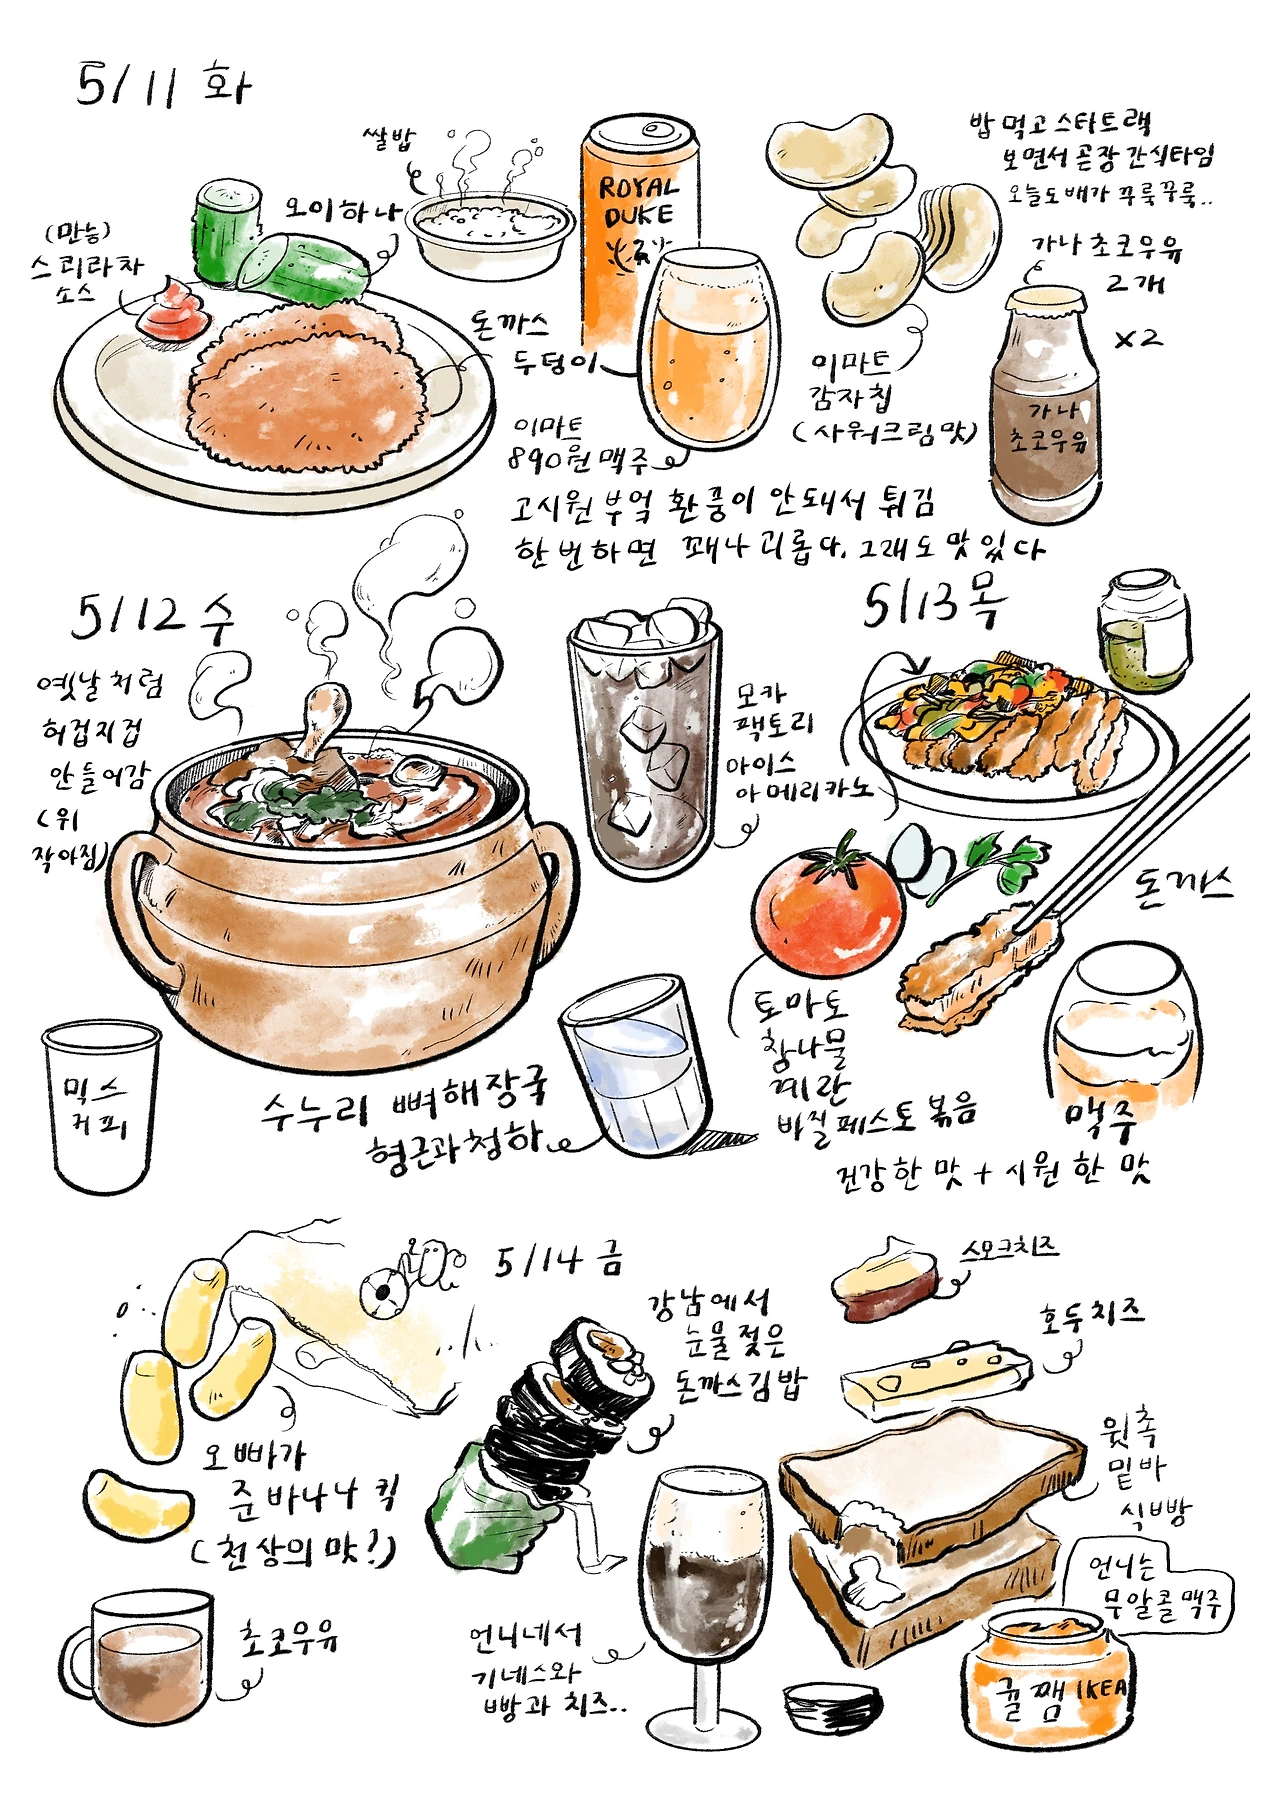 5/11 화
쌀밥
오이하나
(만능)
스리라차
소스
돈까스
두덩이
ROYAL
DUKE
이마트
890원 맥주
밥 먹고 스타트랙
보면서 곧장 간식타임
오늘도 배가 꾸룩꾸룩..
가나 초코우유
2개
x2
이마트
감자칩
(사워크림맛)
가나
초코우유
고시원 부엌 환풍이 안돼서 튀김
한번하면 꽤나 괴롭다. 그래도 맛있다
5/12 수
옛날처럼
허겁지겁
안들어감
(위
작아짐)
모카
팩토리
아이스
아메리카노
믹스
커피
수누리 뼈해장국
형근과청하
5/13 목
돈까스
토마토
참나물
계란
바질페스토 볶음
맥주
건강한 맛 + 시원한 맛
5/14 금
오빠가
준 바나나킥
(천상의 맛?)
초코우유
강남에서
눈물 젖은
돈까스김밥
스모크치즈
호두치즈
윗촉
밑바
식빵
언니는
무알콜맥주
언니네서
기네스와
빵과 치즈..
귤쨈 IKEA